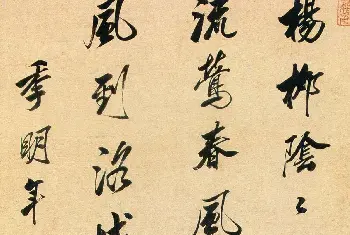 楊柳陰〻
流鶯春風
風到洛城
季明年